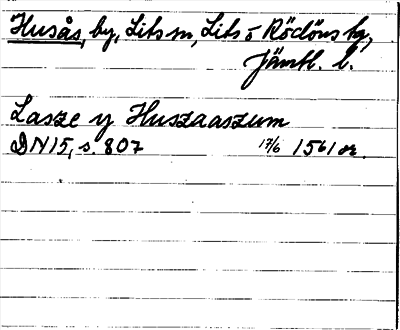 Husås, by, Lits sn, Lits o Rödöns tg,
Jämtl. l.
Lasze y Huszaaszum
DN15, s. 807 17/6 1561 or.